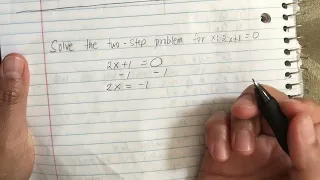 Solve the two-step problem for x: 2x+1=0
2x+1 = 0
-1 -1
2x = -1